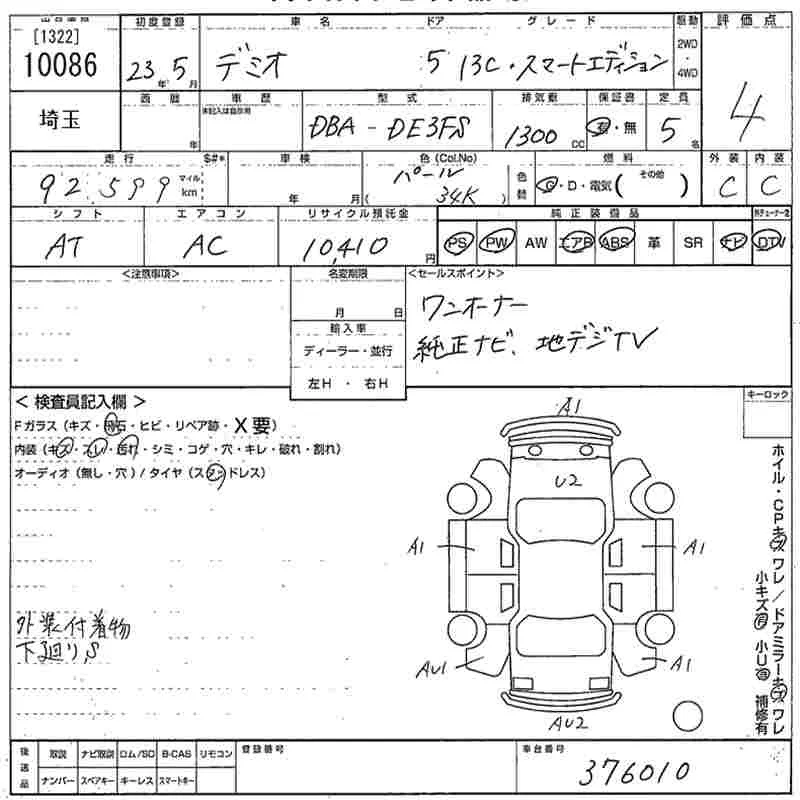 [1322]
10086
初度登録
23年5月
車名
デミオ
ドア
5
グレード
13C・スマートエディション
駆動
2WD
・
4WD
評価点
4
埼玉
西暦
年
車歴
未記入は自家用
型式
DBA-DE3FS
排気量
1300cc
保証書
有・無
定員
5名
走行
92,599
マイル
km
S#*
車検
年 月
色(Col.No)
パール
(34K)
色替
燃料
G・D・電気( その他 )
外装
C
内装
C
シフト
AT
エアコン
AC
リサイクル預託金
10,410円
純正装備品
PS PW AW エアB ABS 革 SR ナビ DTV
<注意事項>
名変期限
月 日
輸入車
ディーラー・並行
左H・右H
<セールスポイント>
ワンオーナー
純正ナビ、地デジTV
<検査員記入欄>
Fガラス(キズ・飛石・ヒビ・リペア跡・X要)
内装(キズ・スレ・汚れ・シミ・コゲ・穴・キレ・破れ・割れ)
オーディオ(無し・穴)/タイヤ(スタッドレス)
外装付着物
下廻りS
A1
U2
A1
A1
AU1
A1
AU2
キーロック
ホイル・CPキズワレ/ドアミラーキズワレ
小キズ有 小U有 補修有
後送品
取説 ナビ取説 ロム/SD B-CAS リモコン
ナンバー スペアキー キーレス スマートキー
登録番号
車台番号
376010